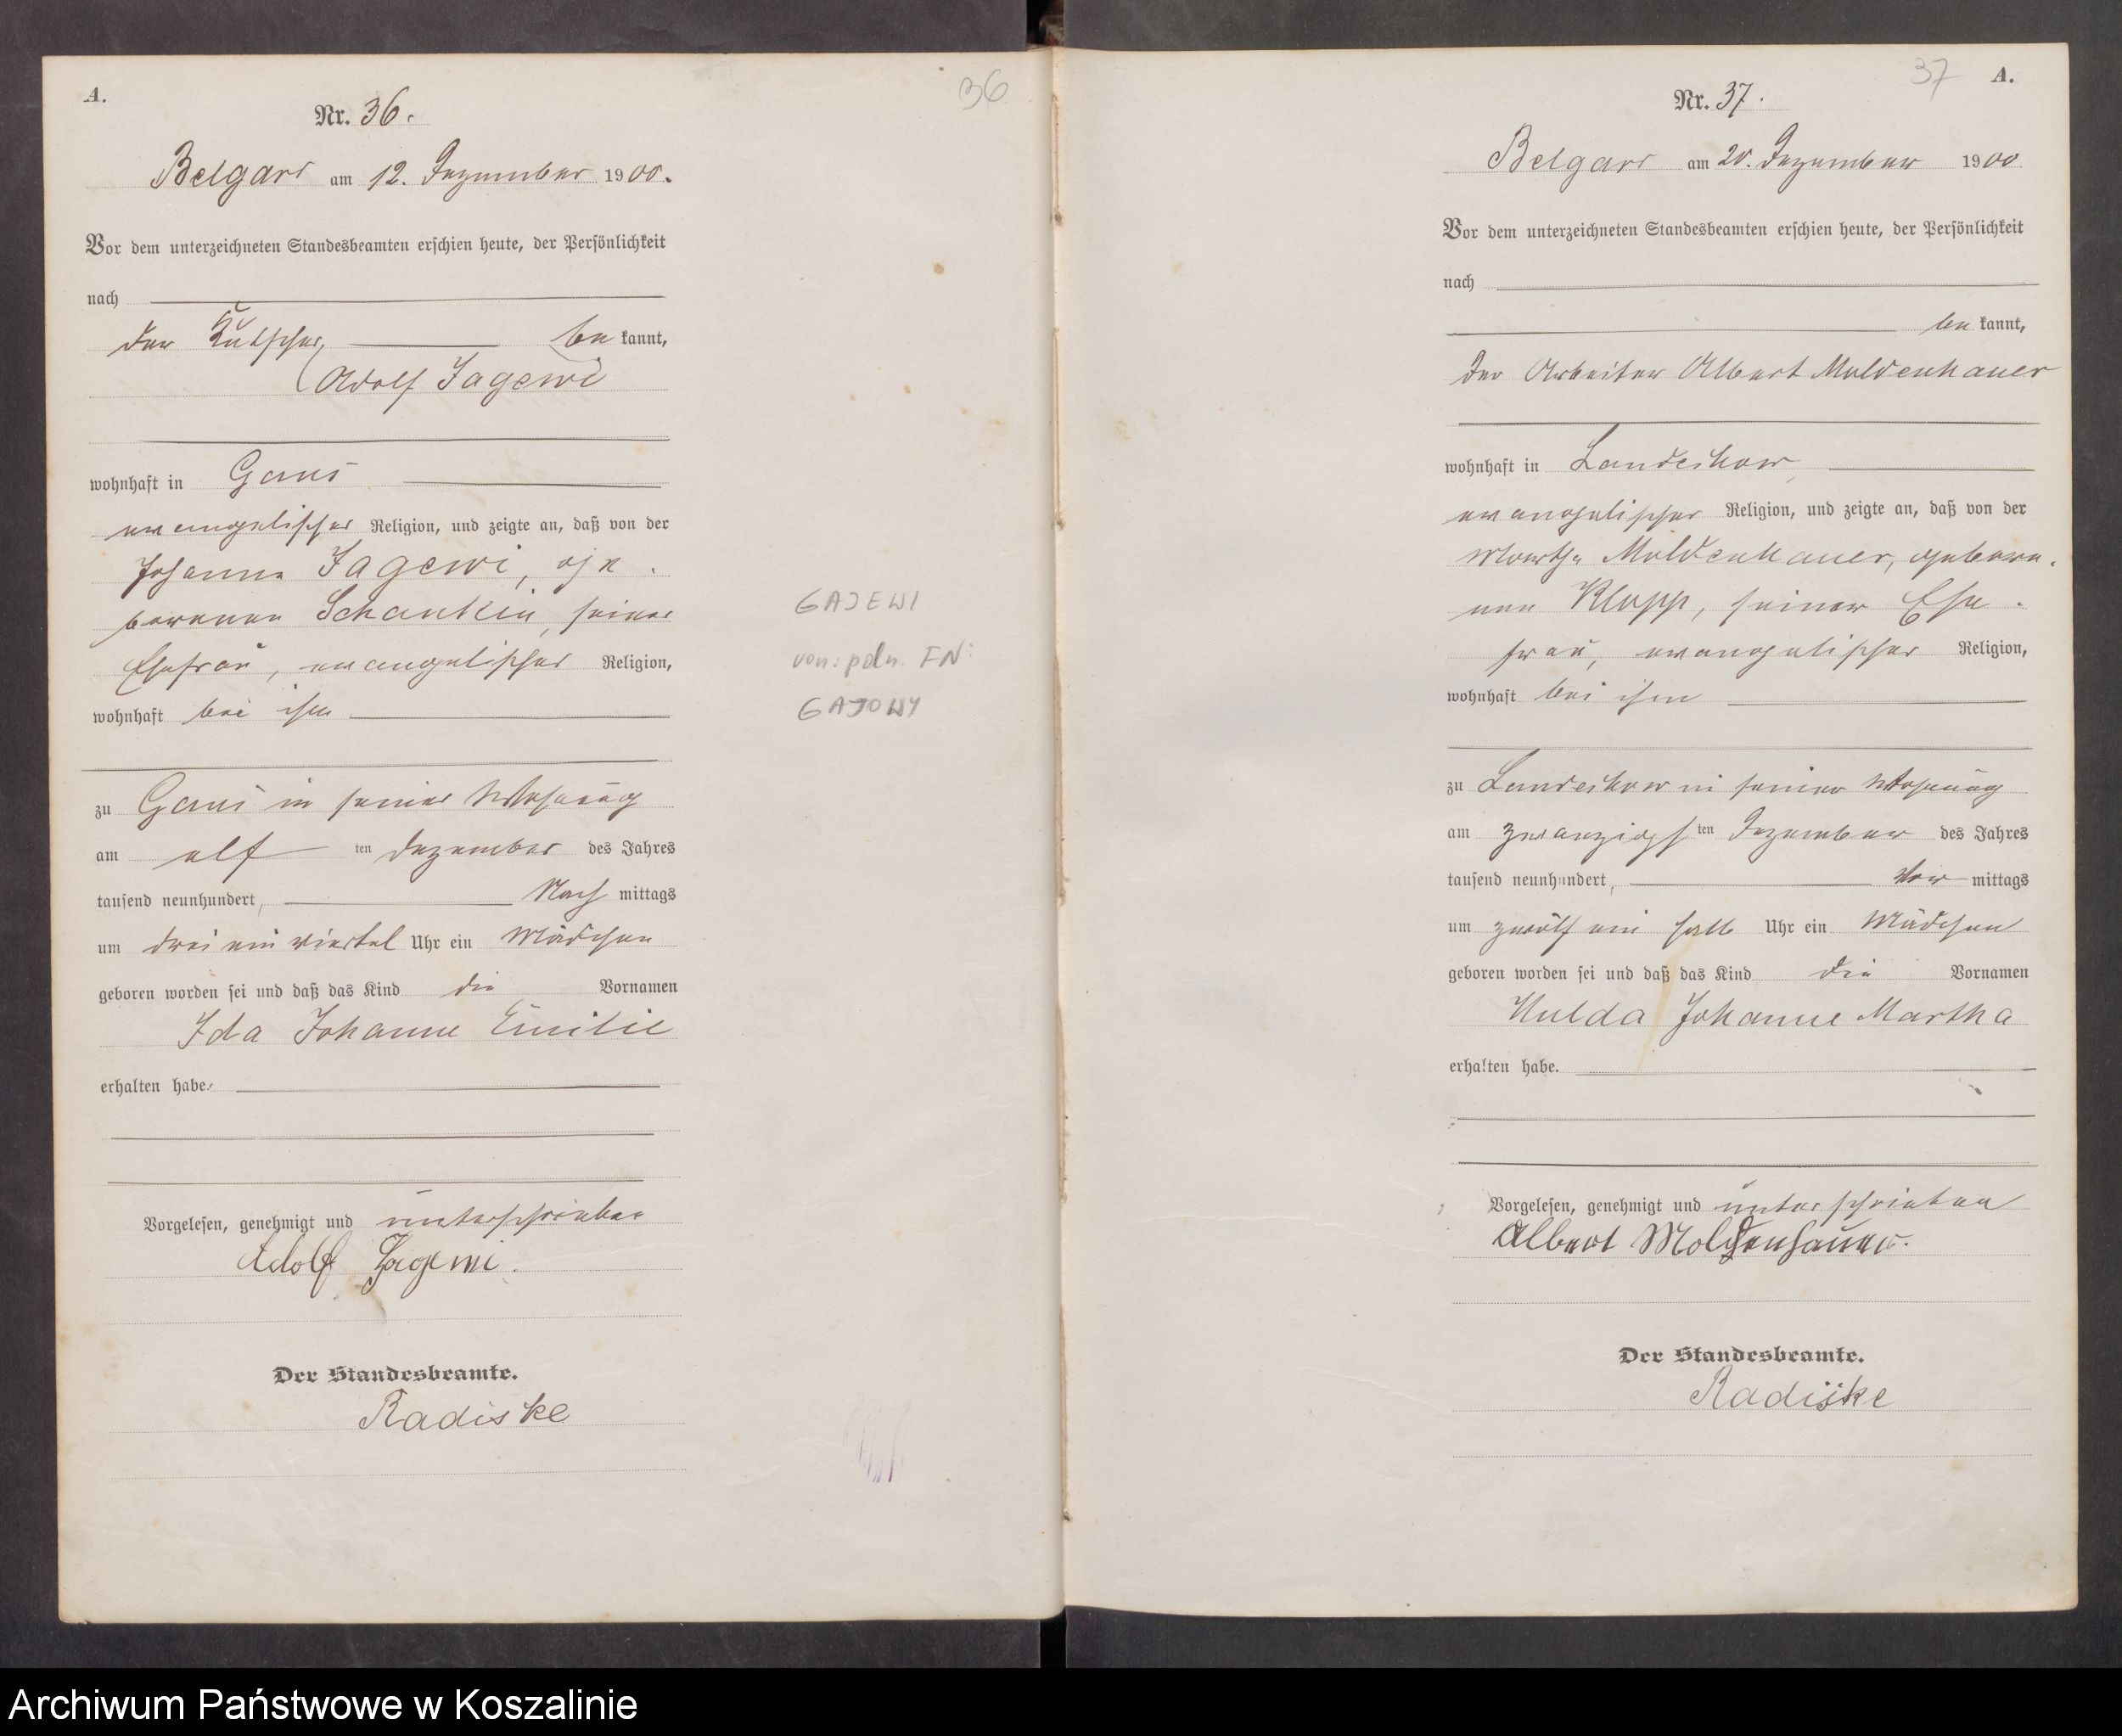 A.
36
Nr. 36.
Belgard am 12. Dezember 1900.
Vor dem unterzeichneten Standesbeamten erschien heute, der Persönlichkeit
nach
der Kutscher, be kannt,
Adolf Jagewi
wohnhaft in Gans
evangelischer Religion, und zeigte an, daß von der
Johanne Jagewi, ge-
borenen Schankin, seiner
Ehefrau, evangelischer Religion,
wohnhaft bei ihm
zu Gans in seiner Wohnung
am elf ten Dezember des Jahres
tausend neunhundert, Nach mittags
um drei ein viertel Uhr ein Mädchen
geboren worden sei und daß das Kind die Vornamen
Ida Johanne Emilie
erhalten habe.
Vorgelesen, genehmigt und unterschrieben
Adolf Jagewi.
Der Standesbeamte.
Radiske
GAJEWI
von: pdn. FN:
GAJOWY
37 A.
Nr. 37.
Belgard am 20. Dezember 1900
Vor dem unterzeichneten Standesbeamten erschien heute, der Persönlichkeit
nach
be kannt,
der Arbeiter Albert Moldenhauer
wohnhaft in Landechow,
evangelischer Religion, und zeigte an, daß von der
Martha Moldenhauer, gebore-
nen Klopp, seiner Ehe-
frau, evangelischer Religion,
wohnhaft bei ihm
zu Landechow in seiner Wohnung
am zwanzigs ten Dezember des Jahres
tausend neunhundert, Vor mittags
um zwölf ein halb Uhr ein Mädchen
geboren worden sei und daß das Kind die Vornamen
Hulda Johanne Martha
erhalten habe.
Vorgelesen, genehmigt und unterschrieben
Albert Moldenhauer.
Der Standesbeamte.
Radiske
Archiwum Państwowe w Koszalinie